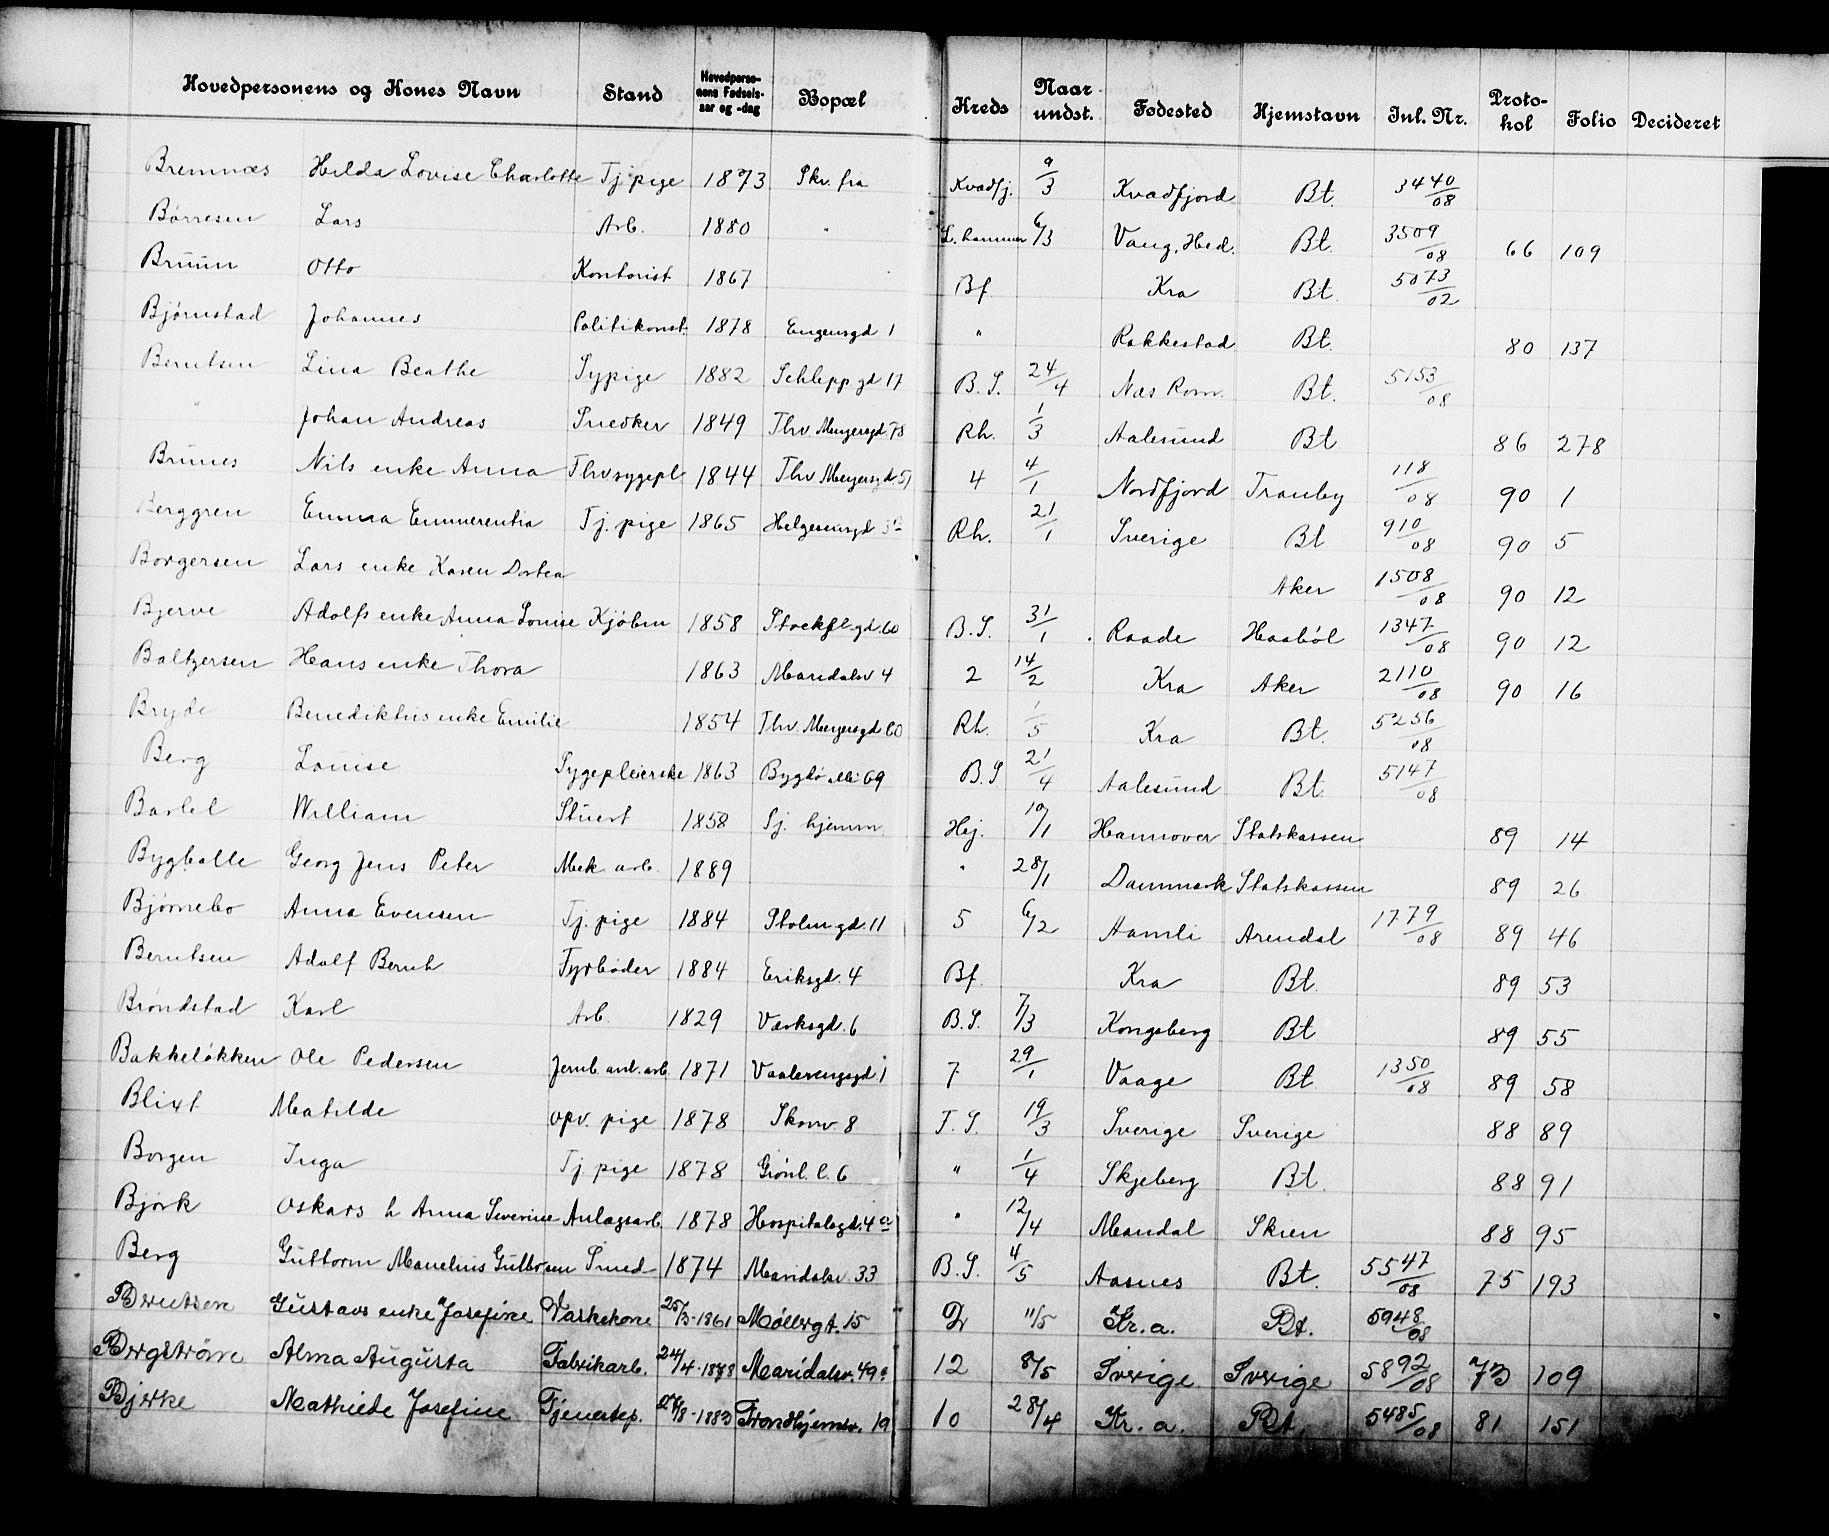 Hovedpersonens og Kones Navn Stand Hovedpersonens Fødselsaar og -dag Bopæl Kreds Naar undst. Fødested Hjemstavn Inl. Nr. Protokol Folio Decideret
Bremnæs Hilda Lovise Charlotte Tj. pige 1873 Skr. fra Kvadfj. 9/3 Kvadfjord Bt. 3440/08
Børresen Lars Arb. 1880 " L. hammer 6/3 Vang, Hed. Bt. 3509/08 66 109
Bruun Otto Kontorist 1867 Bf. Kra Bt. 5073/02
Bjørnstad Johannes Politikonst. 1878 Eugensgd 1 " Rakkestad Bt. 80 137
Berntsen Lina Beathe Sypige 1882 Schleppgd 17 B.S. 24/4 Næs Rom. Bt. 5153/08
" Johan Andreas Snedker 1849 Thv Meyersgd 78 Rh. 1/3 Aalesund Bt 86 278
Brunes Nils enke Anna Thvsygepl 1844 Thv Meyersgd. 51 4 4/1 Nordfjord Tranby 118/08 90 1
Berggren Emma Emmerentia Tj. pige 1865 Helgesensgd Rh. 21/1 Sverige Bt 910/08 90 5
Borgersen Lars enke Karen Dortea Aker 1508/08 90 12
Bjerve Adolfs enke Anna Louise Kjøbm 1858 Stockflgd. 60 B.S. 31/1 Raade Haabøl 1347/08 90 12
Baltzersen Hans enke Thora 1863 Maridalsv 4 2 14/2 Kra Aker 2110/08 90 16
Bryde Benediktus enke Emilie 1854 Thv. Meyersgd 60 Rh. 1/5 Kra Bt. 5256/08
Berg Louise Sygepleierske 1863 Bygdø alle 69 B.S 21/4 Aalesund Bt. 5147/08
Bartel William Stuert 1858 Sj. hjemm. Hej. 10/1 Hannover Statskassen 89 14
Bygballe Georg Jens Peter Mek arb. 1889 " 28/1 Danmark Statskassen 89 26
Bjørnebo Anna Evensen Tj. pige 1884 Stolmgd. 11 5 6/2 Aamli Arendal 1779/08 89 46
Berntsen Adolf Bernh Fyrbøder 1884 Eriksgd. 4 Bf. Kra Bt. 89 53
Brøndstad Karl Arb. 1829 Værksgd. 6 B.S. 7/3 Kongsberg Bt 89 55
Bakkeløkken Ole Pedersen Jernb. anl. arb 1871 Vaalerengsgd 1 7 29/1 Vaage Bt. 1350/08 89 58
Blixt Matilde opv. pige 1878 Skonv. 8 T.S. 19/3 Sverige Sverige 88 89
Borgen Inga Tj. pige 1878 Grønl. l. 6 " 1/4 Skjeberg Bt. 88 91
Bjørk Oskars h Anna Severine Anlægsarb 1878 Hospitalsgd. 4 a " 12/4 Mandal Skien 88 95
Berg Guttorm Manelius Gulbrsen Smed 1874 Maridalsv. 33 B.S. 4/5 Aasnes Bt. 5547/08 75 193
Berntsen Gustavs enke Josefine Vaskekone 25/3-1861 Møllergt. 15 11/5 Kr.a. Bt. 5948/08
Bergstrøm Alma Augusta Fabrikarb. 24/4-1878 Maridalsv. 49 a 12 8/5 Sverige Sverige 5892/08 73 109
Bjerke Mathilde Josefine Tjenestep. 1883 Trondhjemsv. 19 10 28/4 Kr.a. Bt. 5485/08 81 151